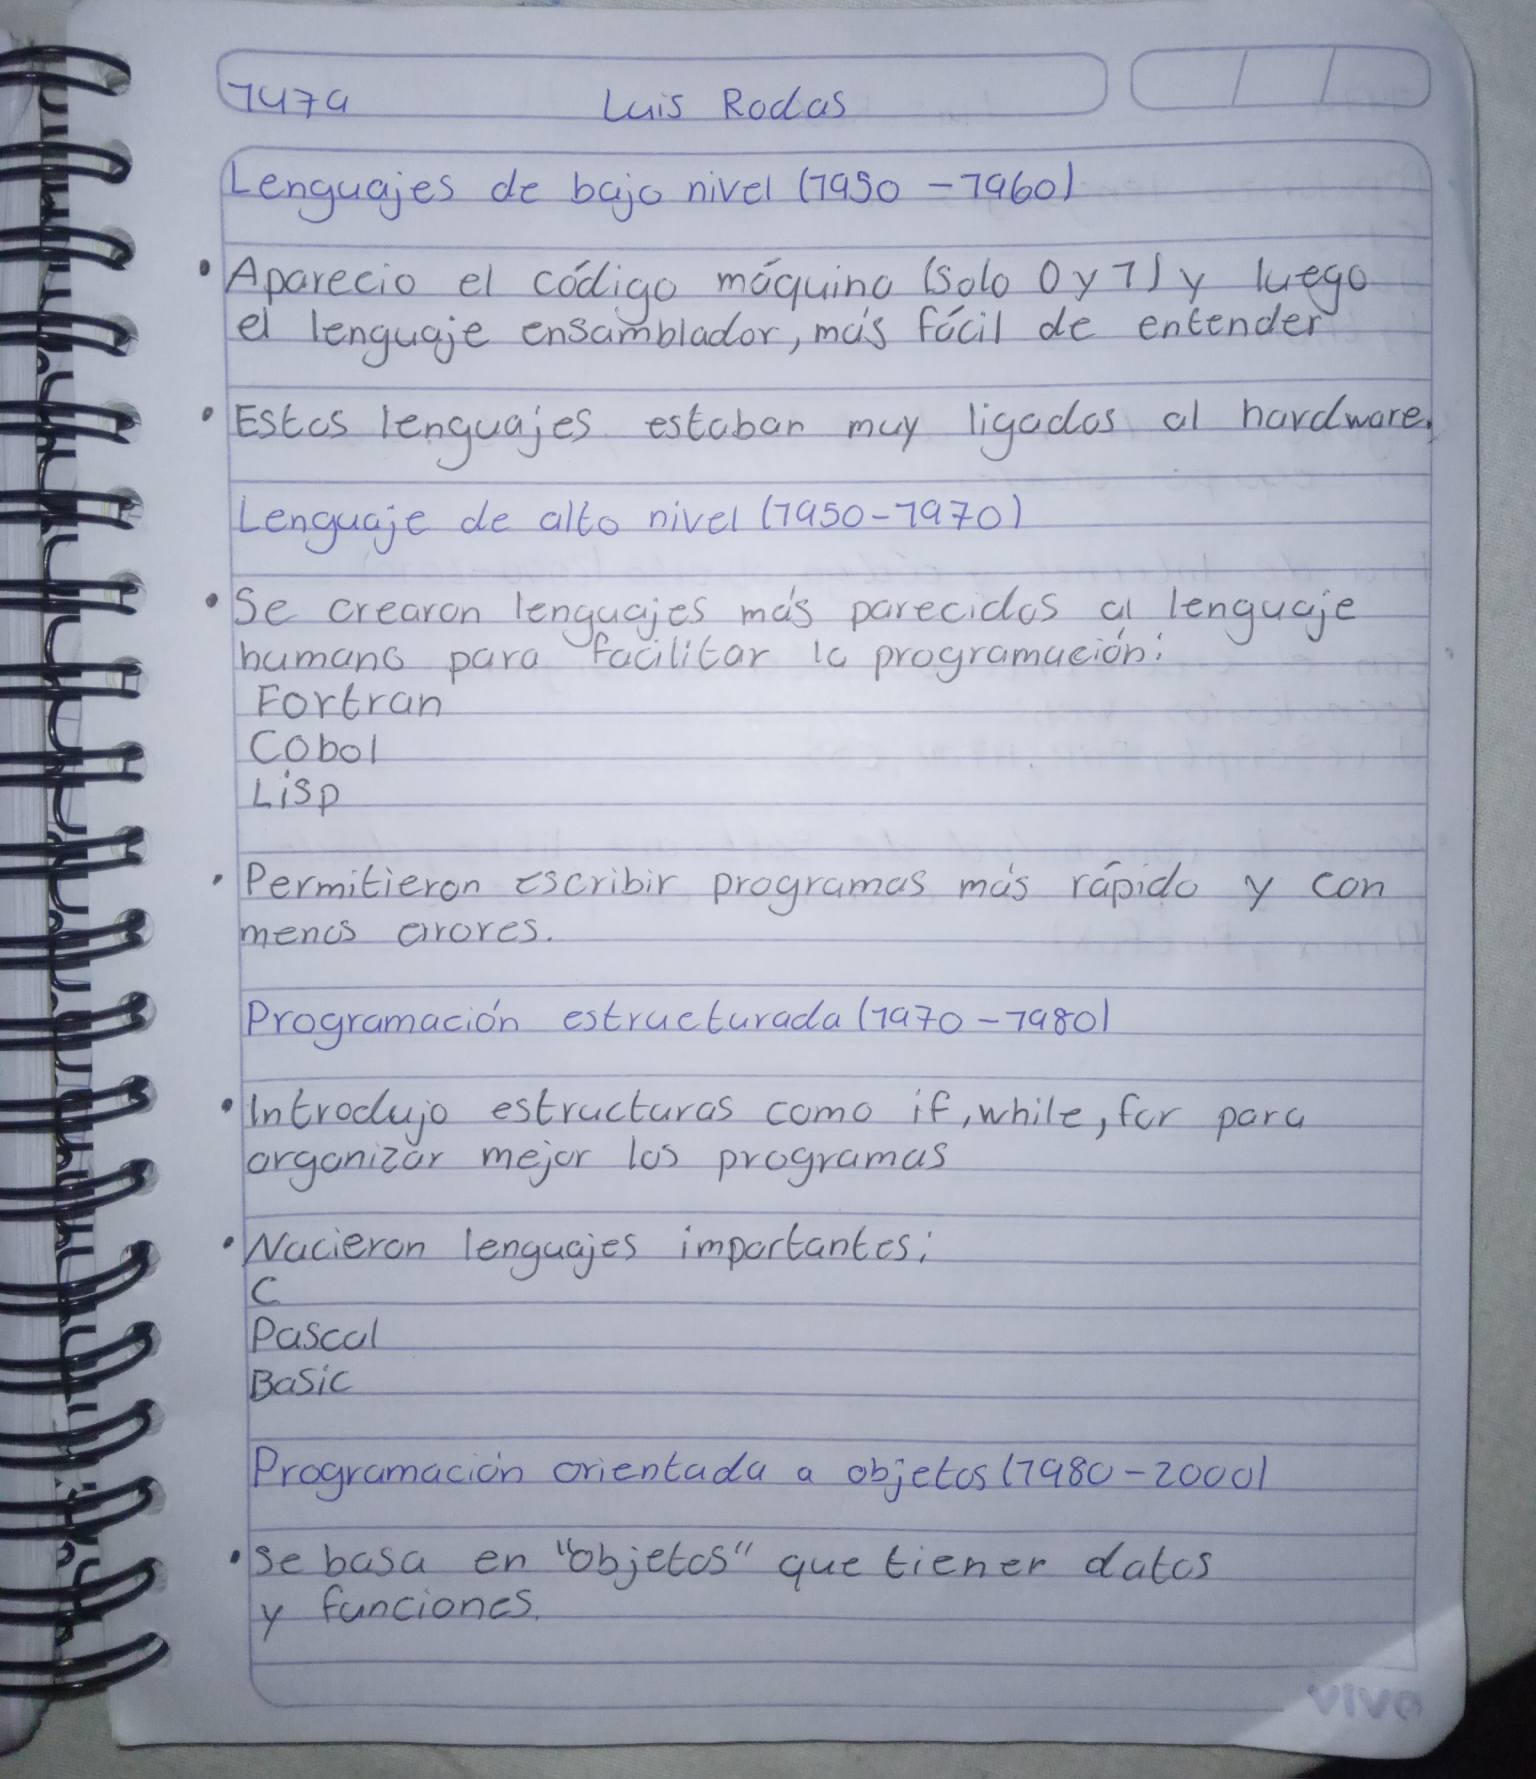 1474 Luis Rodas
Lenguajes de bajo nivel (1950 - 1960)
• Aparecio el código máquina (solo 0 y 1) y luego
el lenguaje ensamblador, más fácil de entender
• Estos lenguajes estaban muy ligados al hardware.
Lenguaje de alto nivel (1950-1970)
• Se crearon lenguajes más parecidos al lenguaje
humano para facilitar la programación:
Fortran
Cobol
Lisp
• Permitieron escribir programas más rápido y con
menos errores.
Programación estructurada (1970 - 1980)
• Introdujo estructuras como if, while, for para
organizar mejor los programas
• Nacieron lenguajes importantes:
C
Pascal
Basic
Programación orientada a objetos (1980 - 2000)
• Se basa en "objetos" que tiener datos
y funciones.
vivo